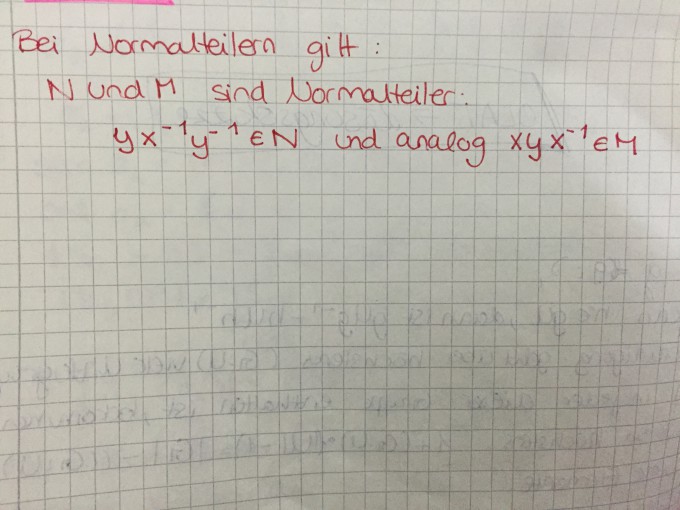 Bei Normalteilern gilt :
N und M sind Normalteiler:
yx⁻¹y⁻¹ ∈ N und analog xyx⁻¹ ∈ M